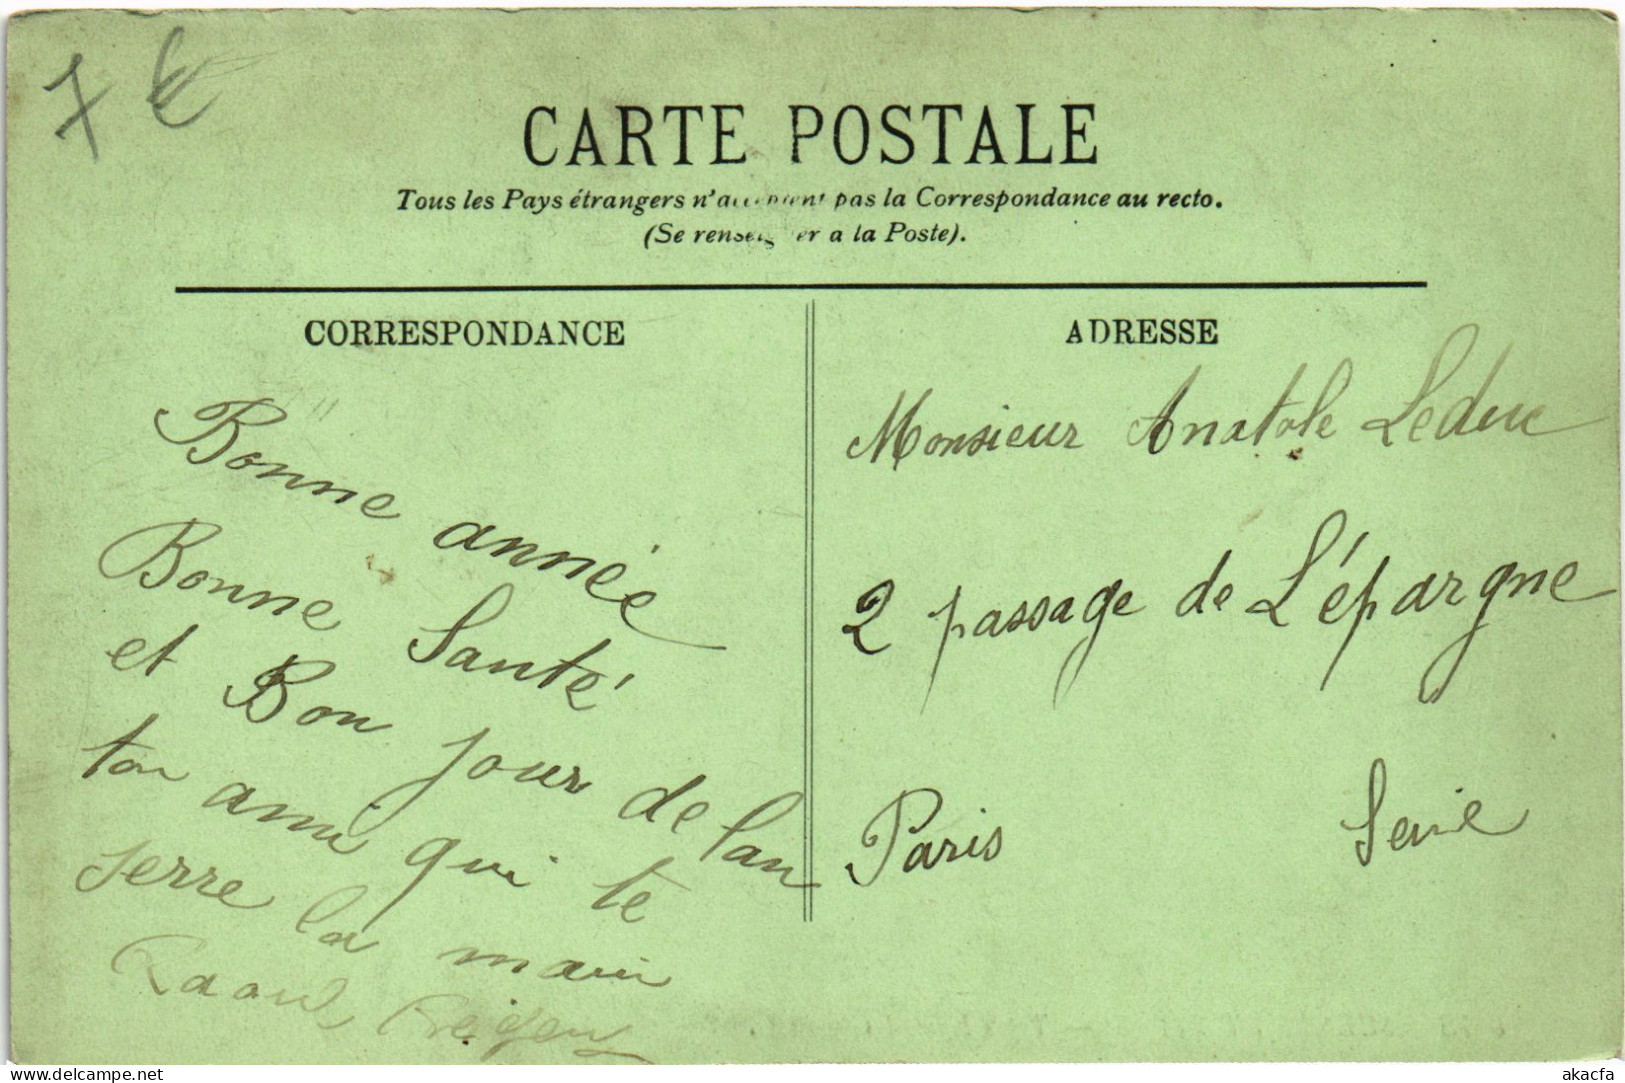 7 €
CARTE POSTALE
Tous les Pays étrangers n'acceptent pas la Correspondance au recto.
(Se renseigner a la Poste).
CORRESPONDANCE
Bonne année
Bonne Santé
et Bon jour de lan
ton ami qui te
serre la main
Raoul
ADRESSE
Monsieur Anatole Leduc
2 passage de L'épargne
Paris Seine
delcampe.net
akacfa